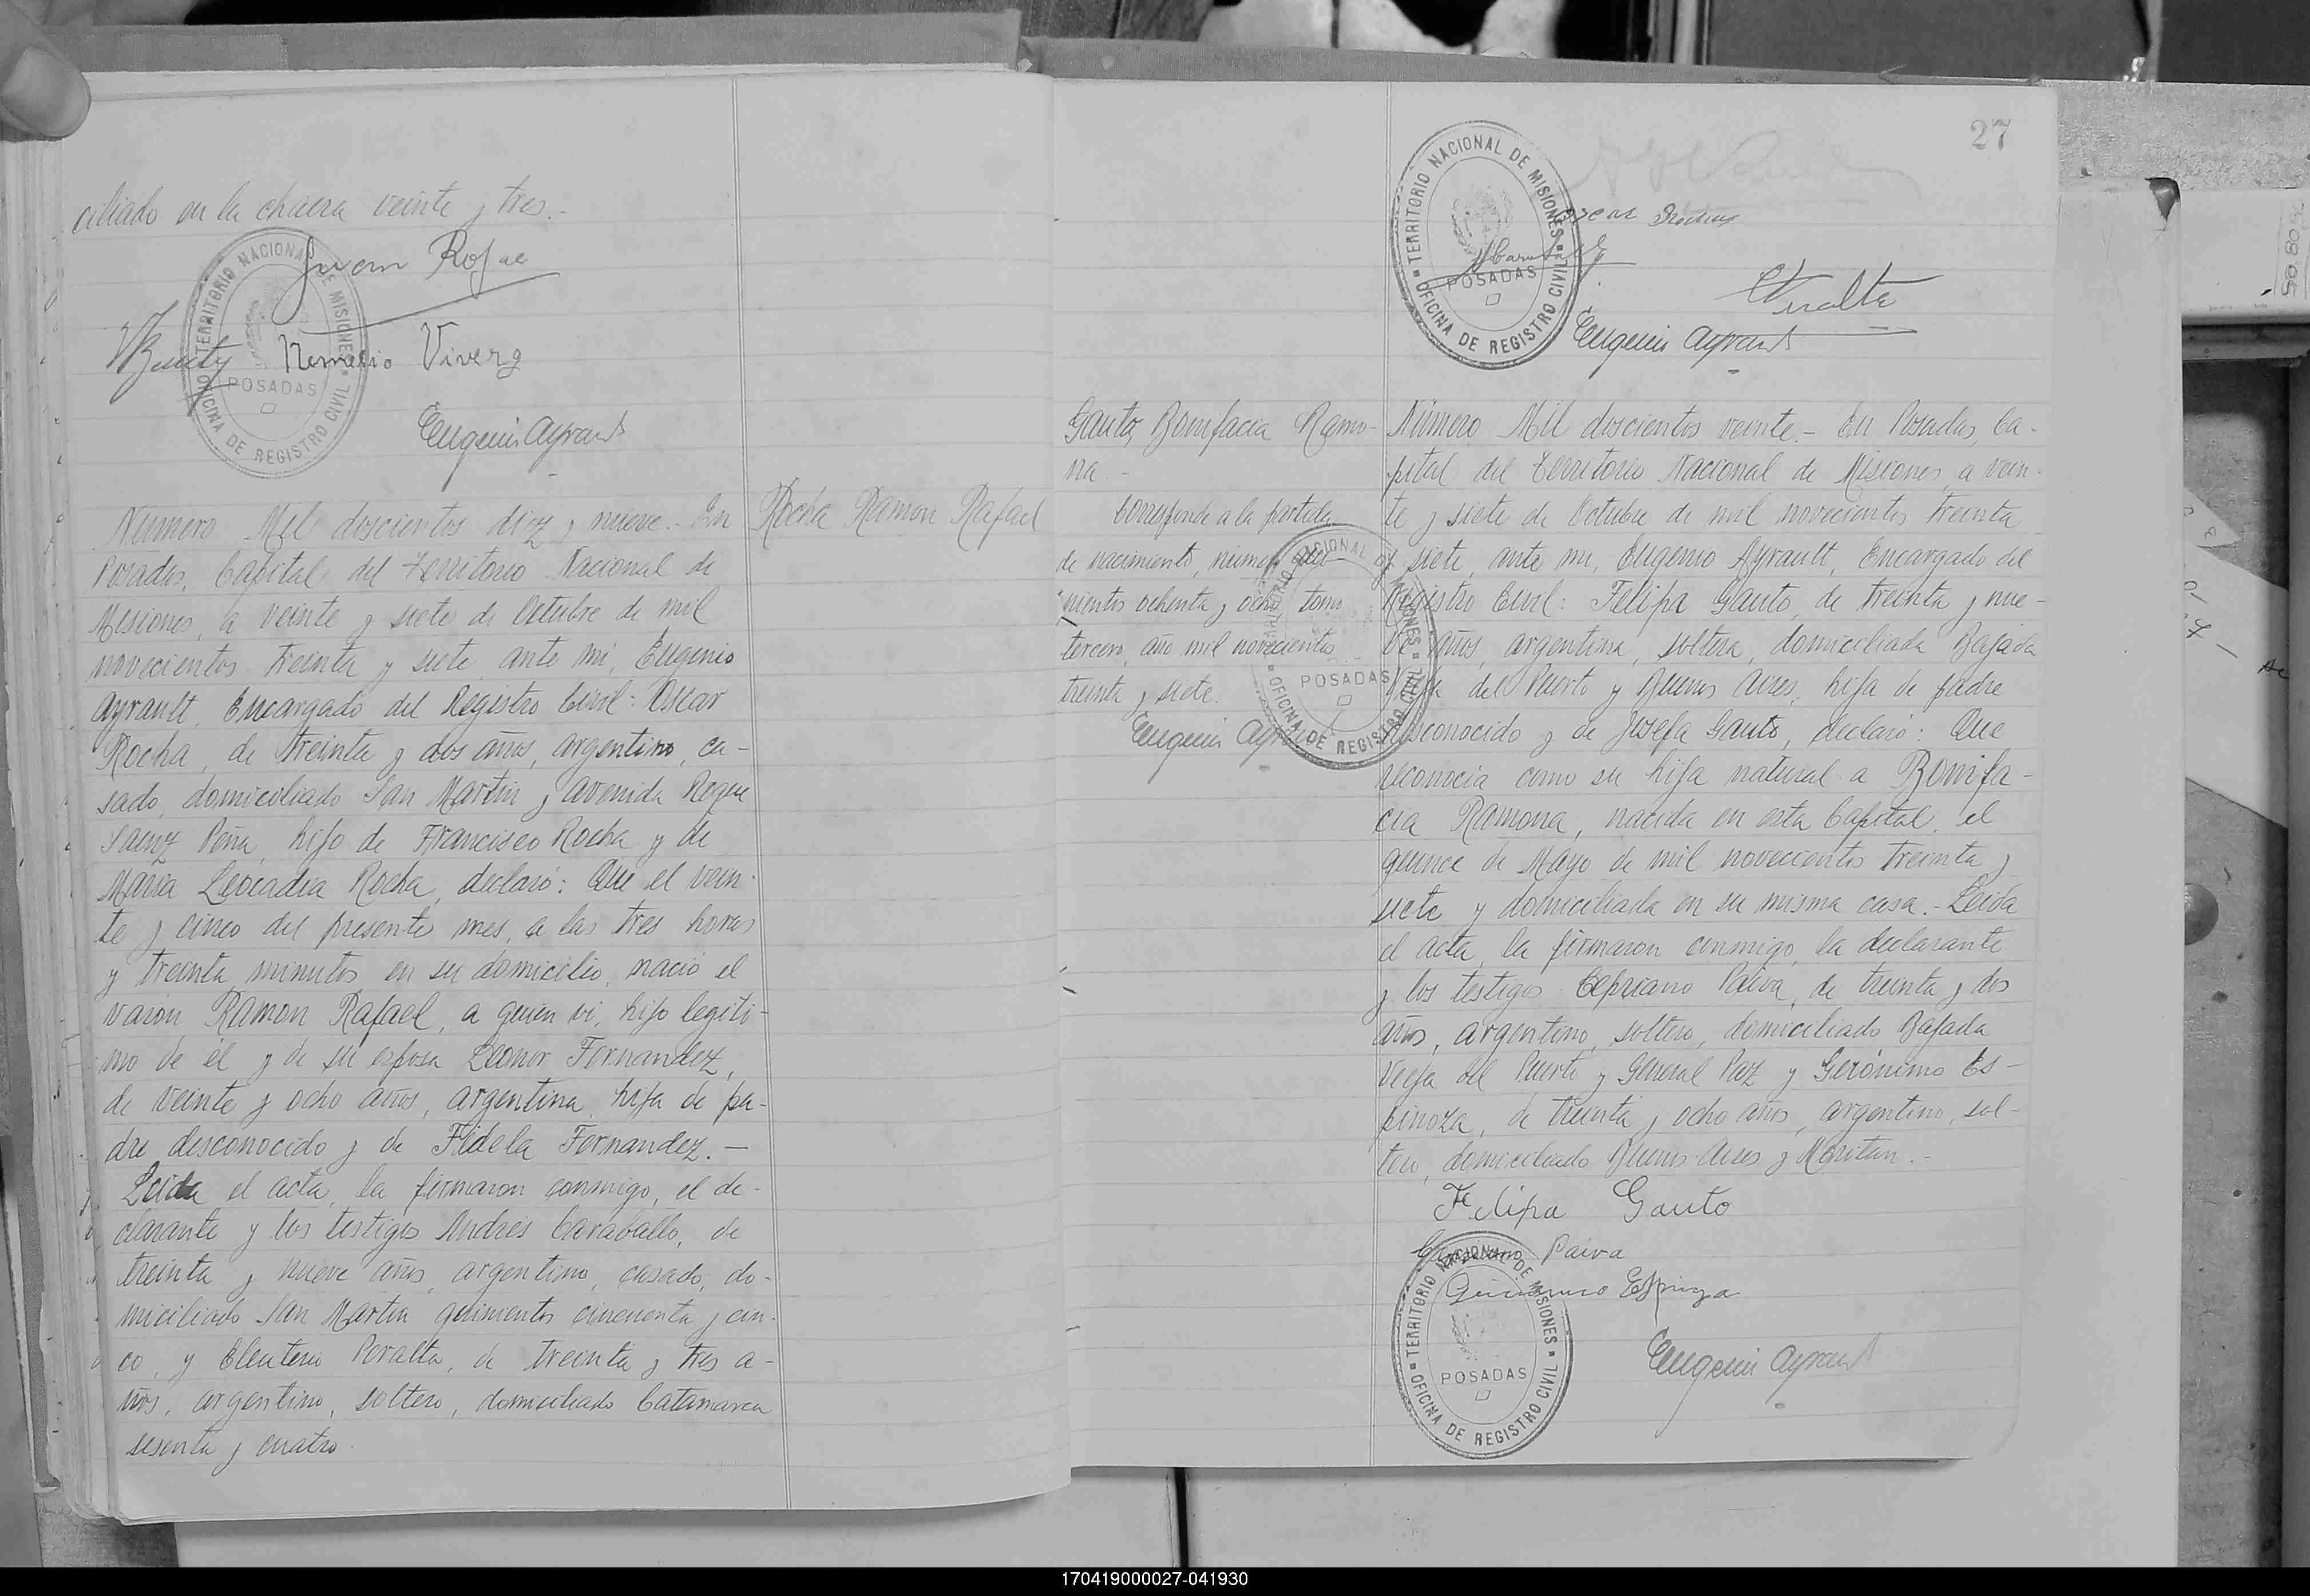 ciliado en la chacra veinte y tres.-
Juan Rojas
Nemesio Vivero
Eugenio Ayrault
TERRITORIO NACIONAL DE MISIONES
POSADAS
OFICINA DE REGISTRO CIVIL
Rocha Ramon Rafael
Número Mil doscientos diez y nueve.- En
Posadas, Capital del Territorio Nacional de
Misiones, a veinte y siete de Octubre de mil
novecientos treinta y siete, ante mi, Eugenio
Ayrault, Encargado del Registro Civil: Oscar
Rocha, de treinta y dos años, argentino, ca-
sado, domiciliado San Martin y avenida Roque
Saenz Peña, hijo de Francisco Rocha y de
Maria Leocadia Rocha, declaró: Que el vein-
te y cinco del presente mes, a las tres horas
y treinta minutos en su domicilio, nació el
varon Ramon Rafael, a quien vi, hijo legiti-
mo de él y de su esposa Leonor Fernandez,
de veinte y ocho años, argentina, hija de pa-
dre desconocido y de Fidela Fernandez.-
Leida el acta, la firmaron conmigo, el de-
clarante y los testigos Andrés Caraballo, de
treinta y nueve años, argentino, casado, do-
miciliado San Martin quinientos cincuenta y cin-
co, y Eleuterio Peralta, de treinta y tres a-
ños, argentino, soltero, domiciliado Catamarca
sesenta y cuatro.
27
TERRITORIO NACIONAL DE MISIONES
POSADAS
OFICINA DE REGISTRO CIVIL
Oscar
Peralta
Eugenio Ayrault
Gauto, Bonifacia Ramo-
na.-
Corresponde a la partida
de nacimiento, número qui-
nientos ochenta y ocho tomo
tercero, año mil novecientos
treinta y siete.
Eugenio Ayrault
TERRITORIO NACIONAL DE MISIONES
POSADAS
OFICINA DE REGISTRO CIVIL
Número Mil doscientos veinte.- En Posadas, Ca-
pital del Territorio Nacional de Misiones, a vein-
te y siete de Octubre de mil novecientos treinta
y siete, ante mi, Eugenio Ayrault, Encargado del
Registro Civil: Felipa Gauto, de treinta y nue-
ve años, argentina, soltera, domiciliada Bajada
Vieja del Puerto y Buenos Aires, hija de padre
desconocido y de Josefa Gauto, declaró: Que
reconocia como su hija natural a Bonifa-
cia Ramona, nacida en esta Capital, el
quince de Mayo de mil novecientos treinta y
siete y domiciliada en su misma casa.- Leida
el acta, la firmaron conmigo, la declarante
y los testigos Cepriano Paiva, de treinta y dos
años, argentino, soltero, domiciliado Bajada
Vieja del Puerto y General Paz y Gerónimo Es-
pinoza, de treinta y ocho años, argentino, sol-
tero, domiciliado Buenos Aires y Moritan.-
Felipa Gauto
Paiva
Espinoza
Eugenio Ayrault
TERRITORIO NACIONAL DE MISIONES
POSADAS
OFICINA DE REGISTRO CIVIL
170419000027-041930